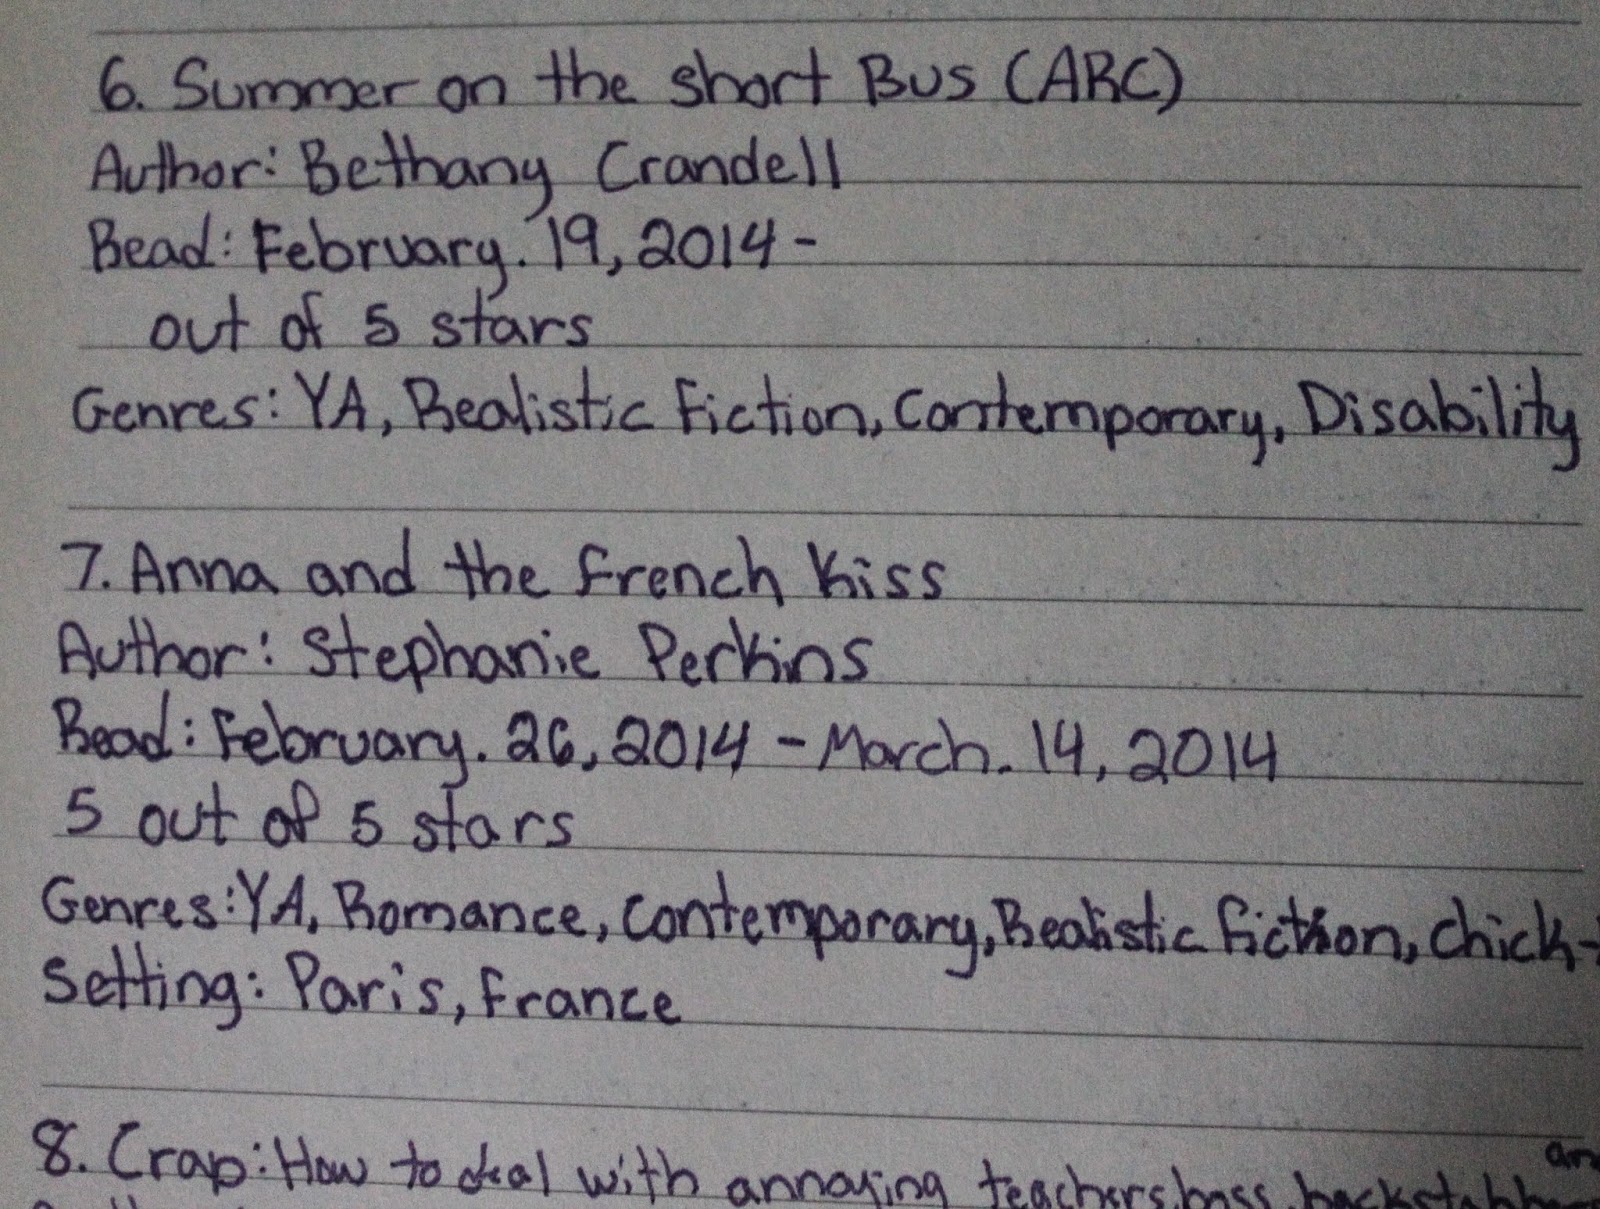 6. Summer on the short Bus (ARC)
Author: Bethany Crandell
Read: February. 19, 2014 -
out of 5 stars
Genres: YA, Realistic Fiction, Contemporary, Disability
7. Anna and the French Kiss
Author: Stephanie Perkins
Read: February. 26, 2014 - March. 14, 2014
5 out of 5 stars
Genres: YA, Romance, Contemporary, Realistic Fiction, Chick-
Setting: Paris, France
8. Crap: How to deal with annoying teachers, boss,